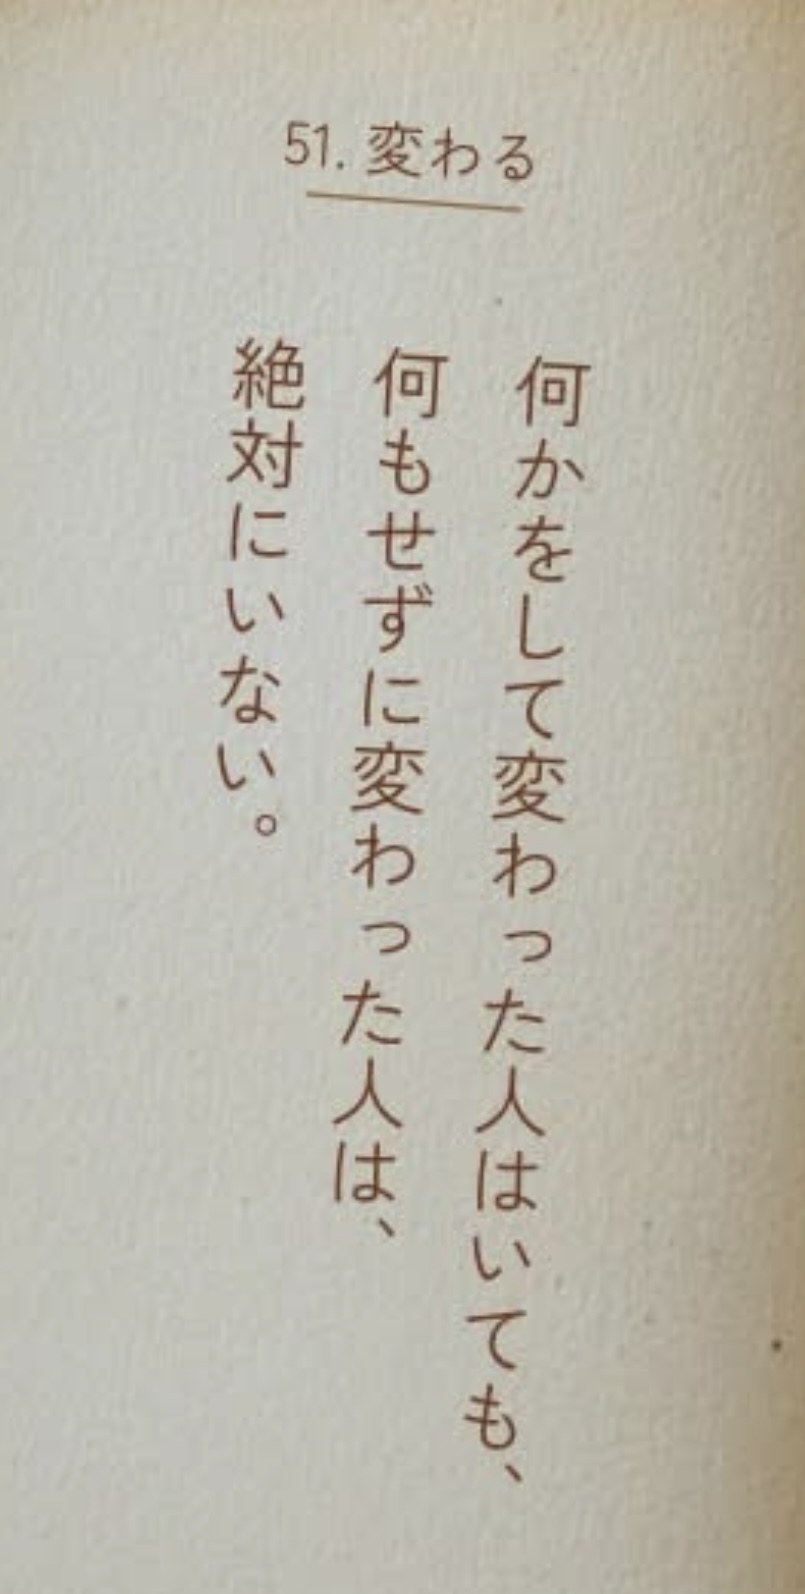 51. 変わる
何かをして変わった人はいても、
何もせずに変わった人は、
絶対にいない。